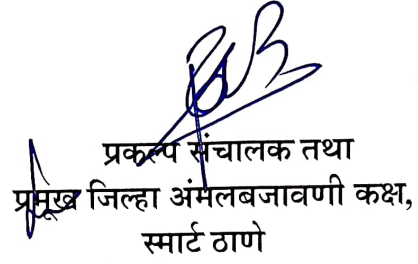 प्रकल्प संचालक तथा
प्रमुख जिल्हा अंमलबजावणी कक्ष,
स्मार्ट ठाणे